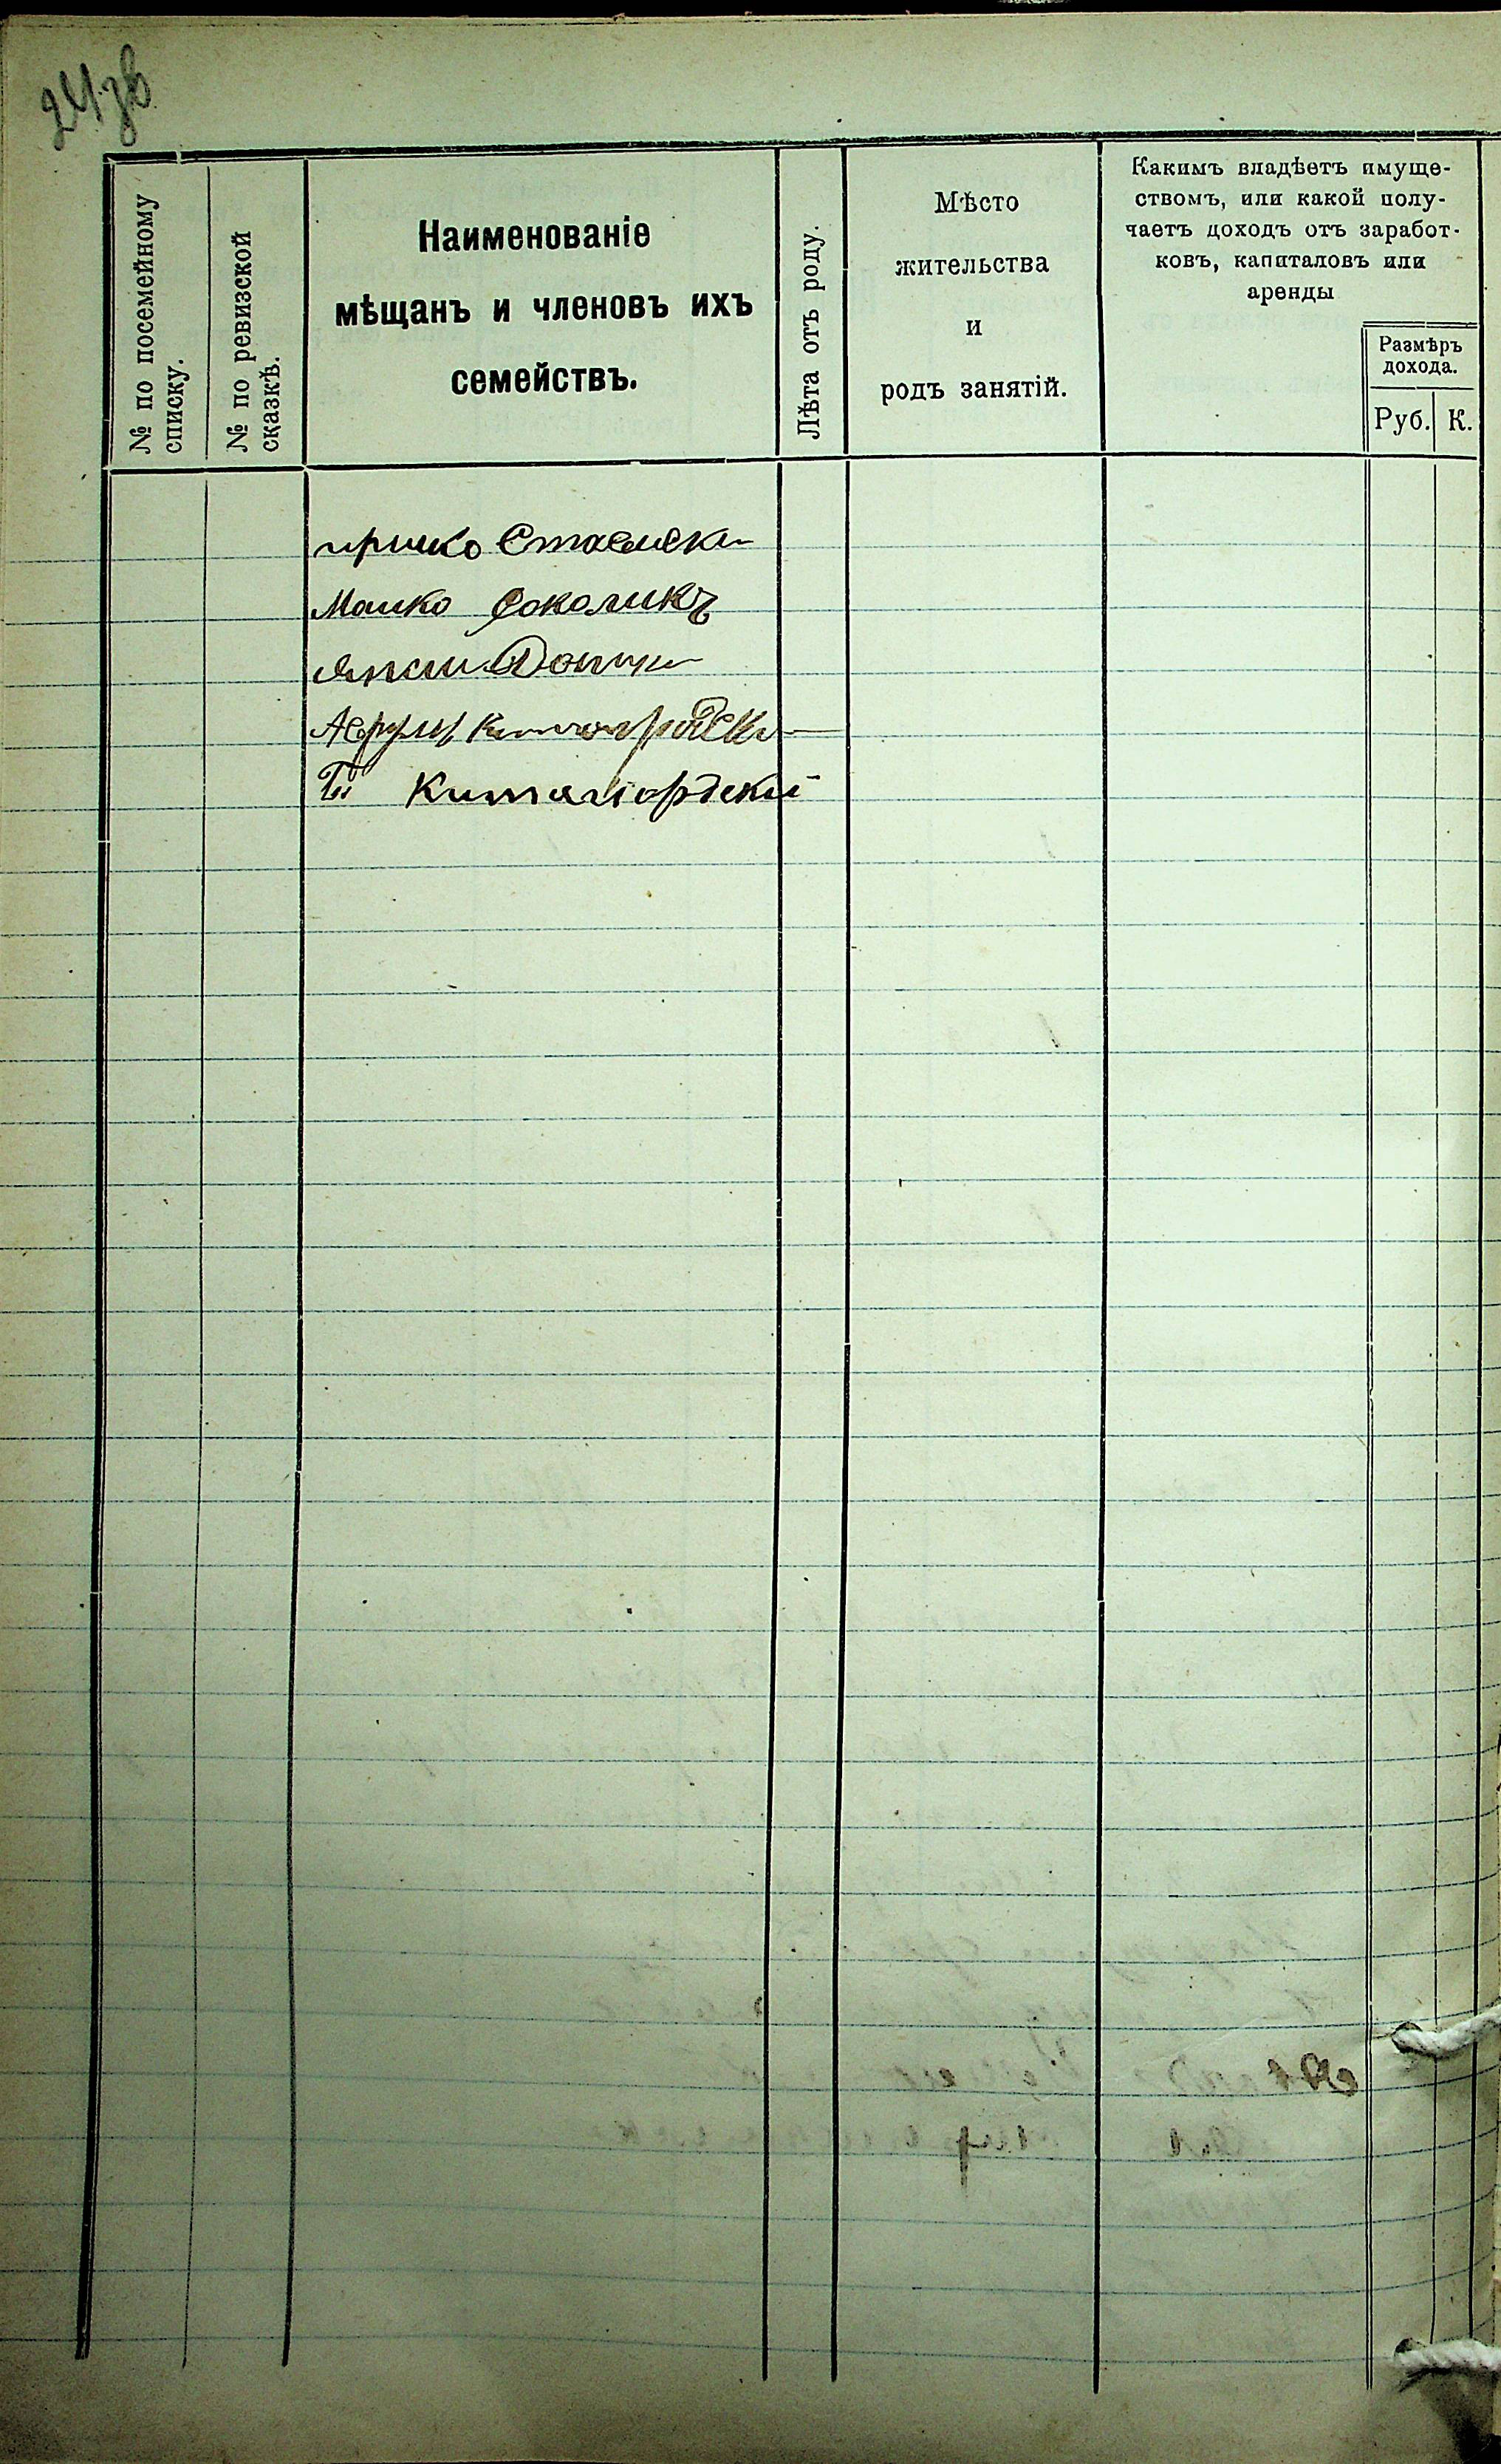 24зв
№ по посемейному
списку.
№ по ревизской
сказкѣ.
Наименованіе
мѣщанъ и членовъ ихъ
семействъ.
Лѣта отъ роду.
Мѣсто
жительства
и
родъ занятій.
Какимъ владѣетъ имуще-
ствомъ, или какой полу-
чаетъ доходъ отъ заработ-
ковъ, капиталовъ или
аренды
Размѣръ
дохода.
Руб. К.
Мошко Соколикъ
Китайгордский